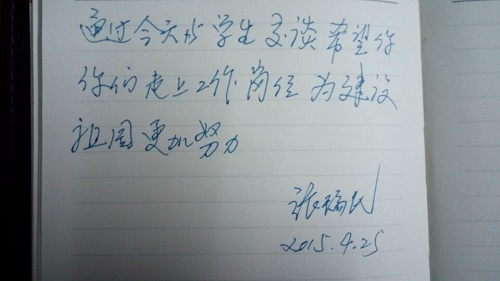 通过今天与学生交谈希望你
你们走上工作岗位为建设
祖国更加努力
张福民
2015.4.25